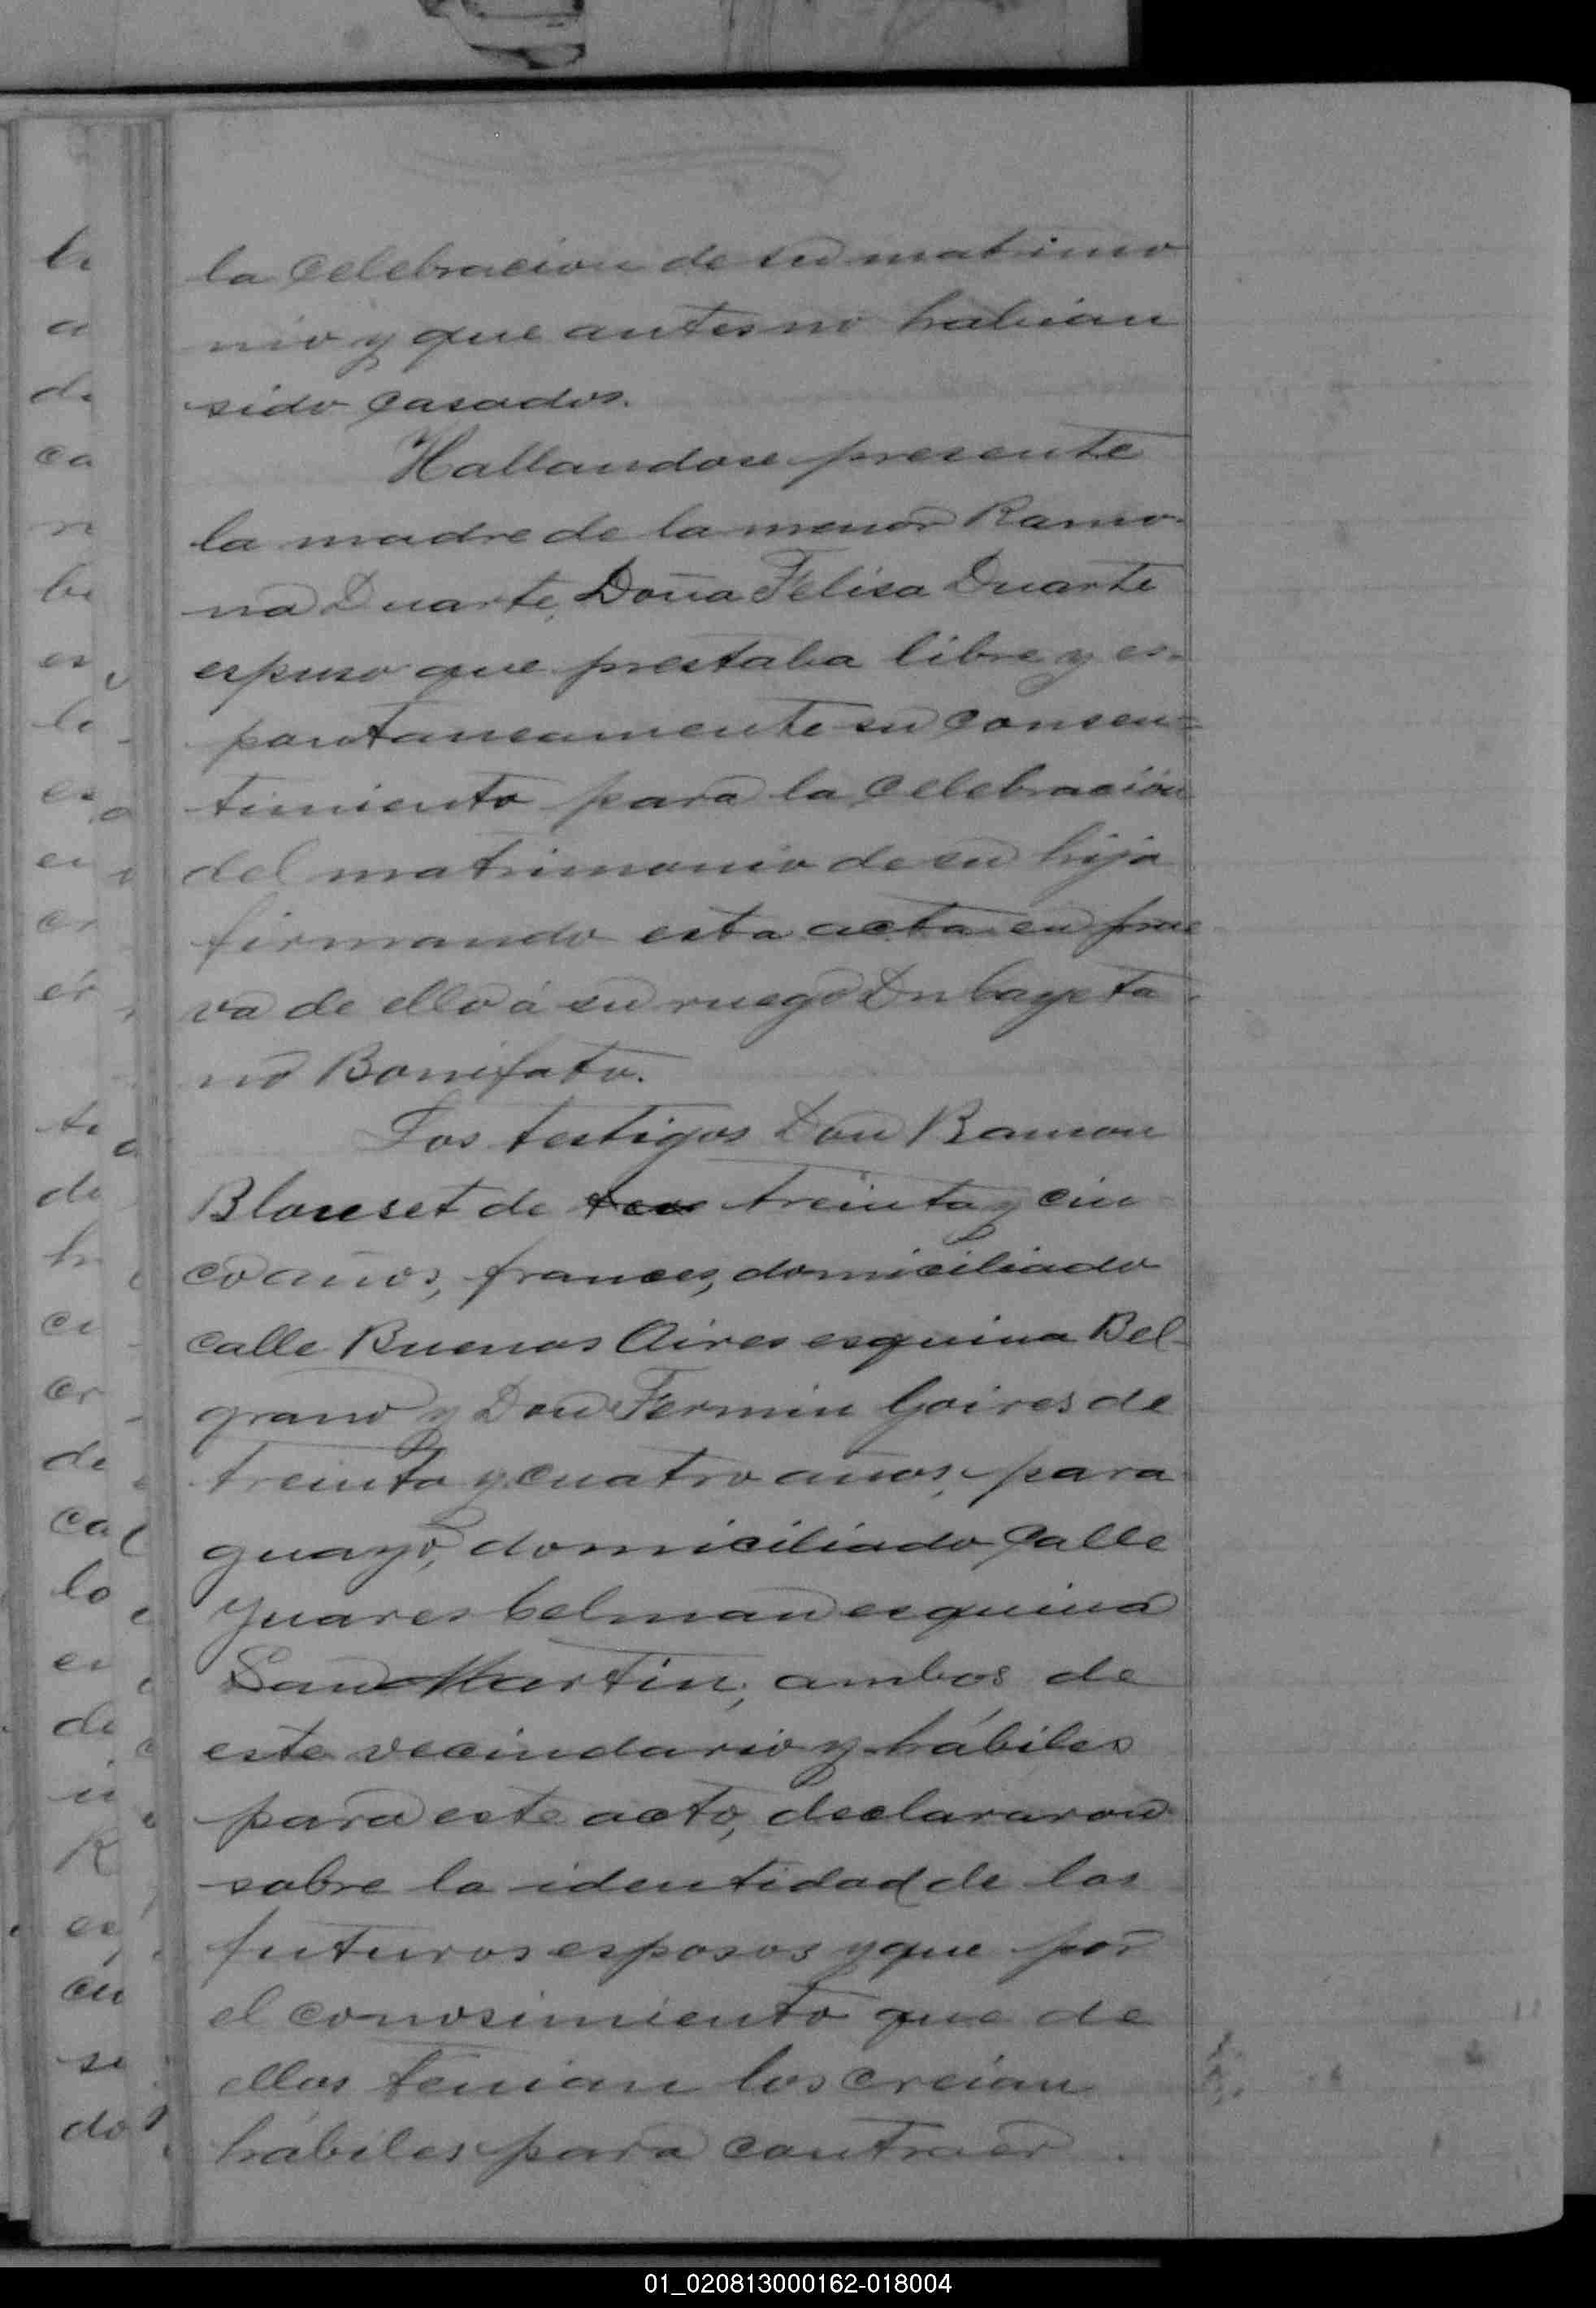 la celebracion de su matrimo
nio y que antes no habian
sido casados.
Hallandose presente
la madre de la menor Ramo-
na Duarte, Doña Felisa Duarte
espuso que prestaba libre y es-
pontaneamente su consen=
timiento para la celebración
del matrimonio de su hija
firmando esta acta en prue
va de ello á su ruego Dn Cayeta
no Bonifato.
Los testigos Don Ramon
Blouset de treinta y cin
co años, frances, domiciliado
calle Buenos Aires esquina Bel-
grano y Don Fermin Goires de
treinta y cuatro años, para
guayo, domiciliado calle
Juares Celman esquina
San Martin, ambos de
este vecindario y hábiles
para este acto, declararon
sobre la identidad de los
futuros esposos y que por
el conosimiento que de
ellos tenian los creían
hábiles para contraer
01_020813000162-018004